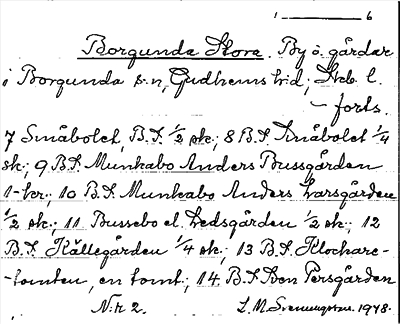 1 ——— 6
Borgunda Stora. By o. gårdar
i Borgunda s:n, Gudhems hd, Skb. l.
– forts.
7 Småbolet, B.S. ½ sk.; 8 B.S. Småbolet ¼
sk.; 9 B.S. Munkabo Anders Bussgården
1-kr.; 10 B.S. Munkabo Anders Larsgården
½ sk.; 11 Bussebo el. Ledsgården ½ sk.; 12
B.S. Källegården ¼ sk.; 13 B.S. Klockare-
-tomten, en tomt; 14. B.S. Sven Persgården
N:r 2. L. M. Svenungsson. 1948.